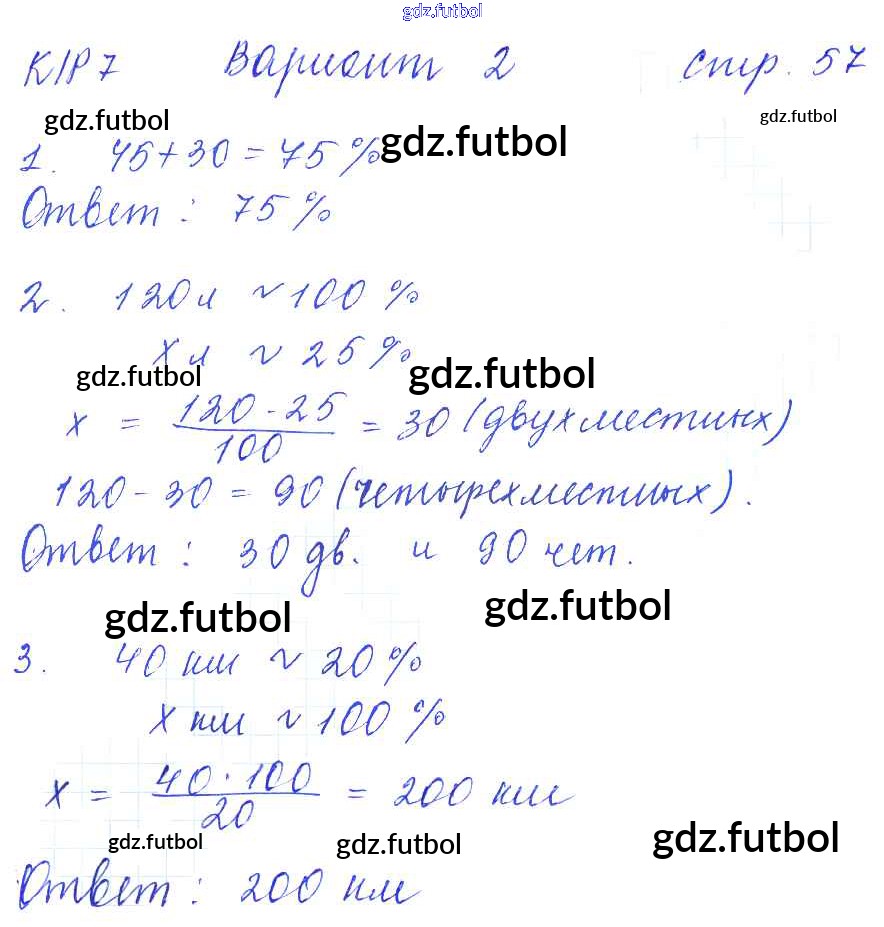 gdz.futbol
К/Р 7 Вариант 2 стр. 57
gdz.futbol gdz.futbol gdz.futbol
1. 45+30 = 75 %
Ответ : 75 %
2. 120 л ~ 100 %
х л ~ 25 %
gdz.futbol gdz.futbol
x = 120 · 25 / 100 = 30 (двухместных)
120 - 30 = 90 (четырехместных).
Ответ : 30 дв. и 90 чет.
gdz.futbol gdz.futbol
3. 40 км ~ 20 %
х км ~ 100 %
x = 40 · 100 / 20 = 200 км
gdz.futbol gdz.futbol gdz.futbol
Ответ : 200 км